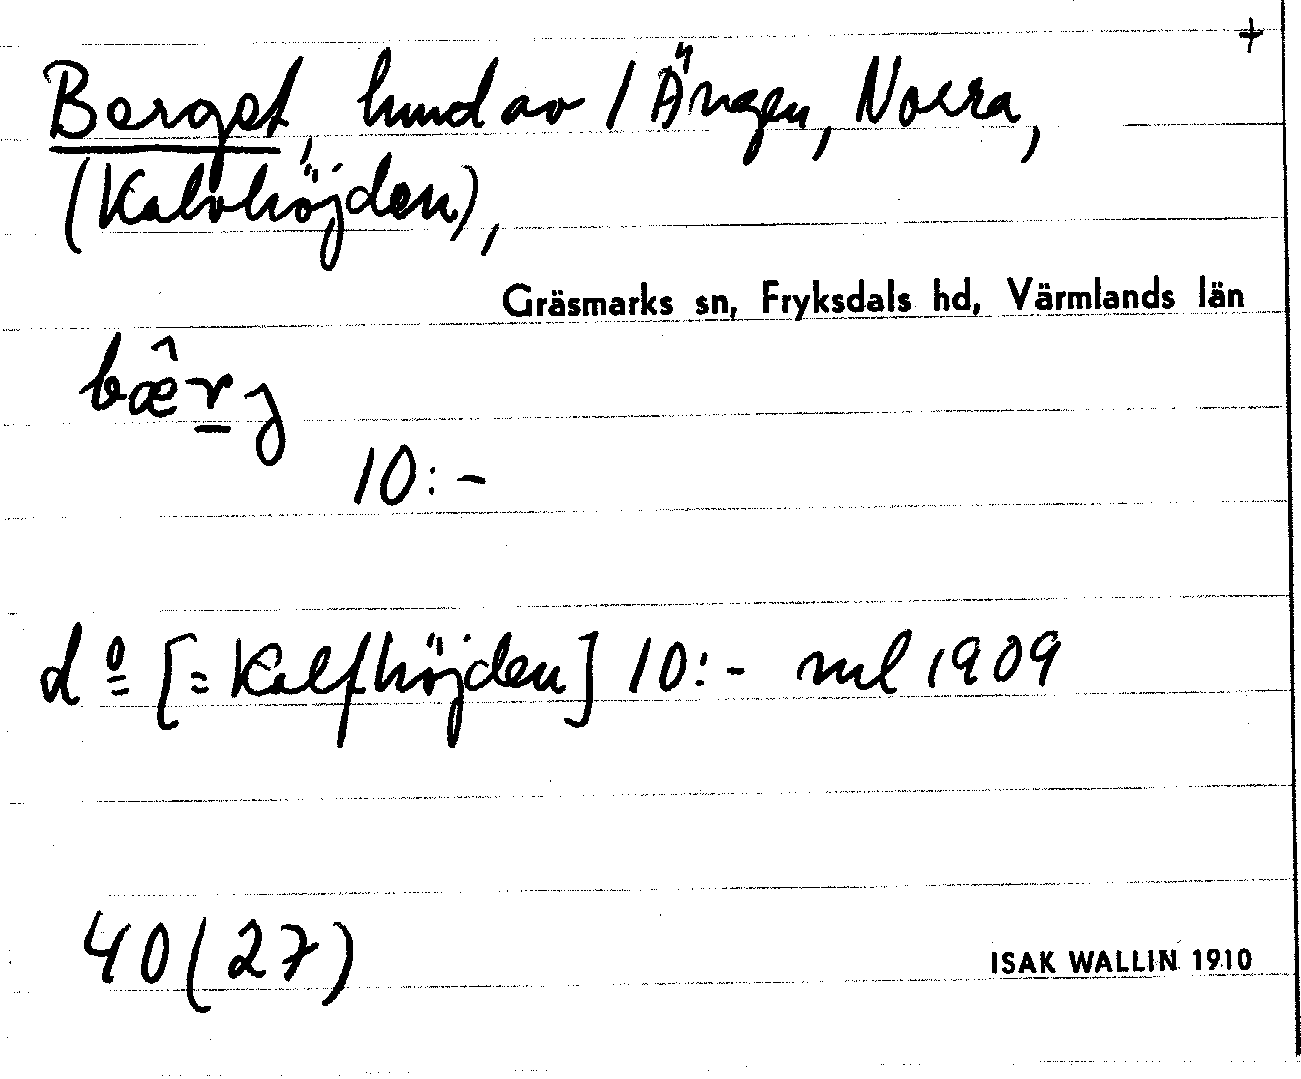 +
Berget, hmd av 1 Ängen, Norra,
(Kalvhöjden),
Gräsmarks sn, Fryksdals hd, Värmlands län
bæ̂r̲j
10:-
dº [= Kalfhöjden] 10:- ml 1909
40(27)
ISAK WALLIN 1910